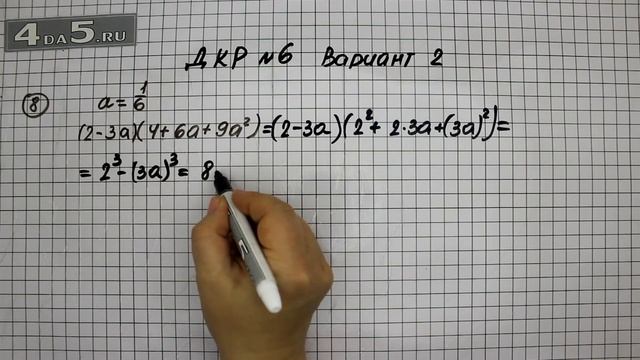 4DA5.RU
ДКР №6 Вариант 2
8 a = 1/6
(2-3a)(4+6a+9a²)=(2-3a)(2²+2·3a+(3a)²)=
= 2³-(3a)³= 8